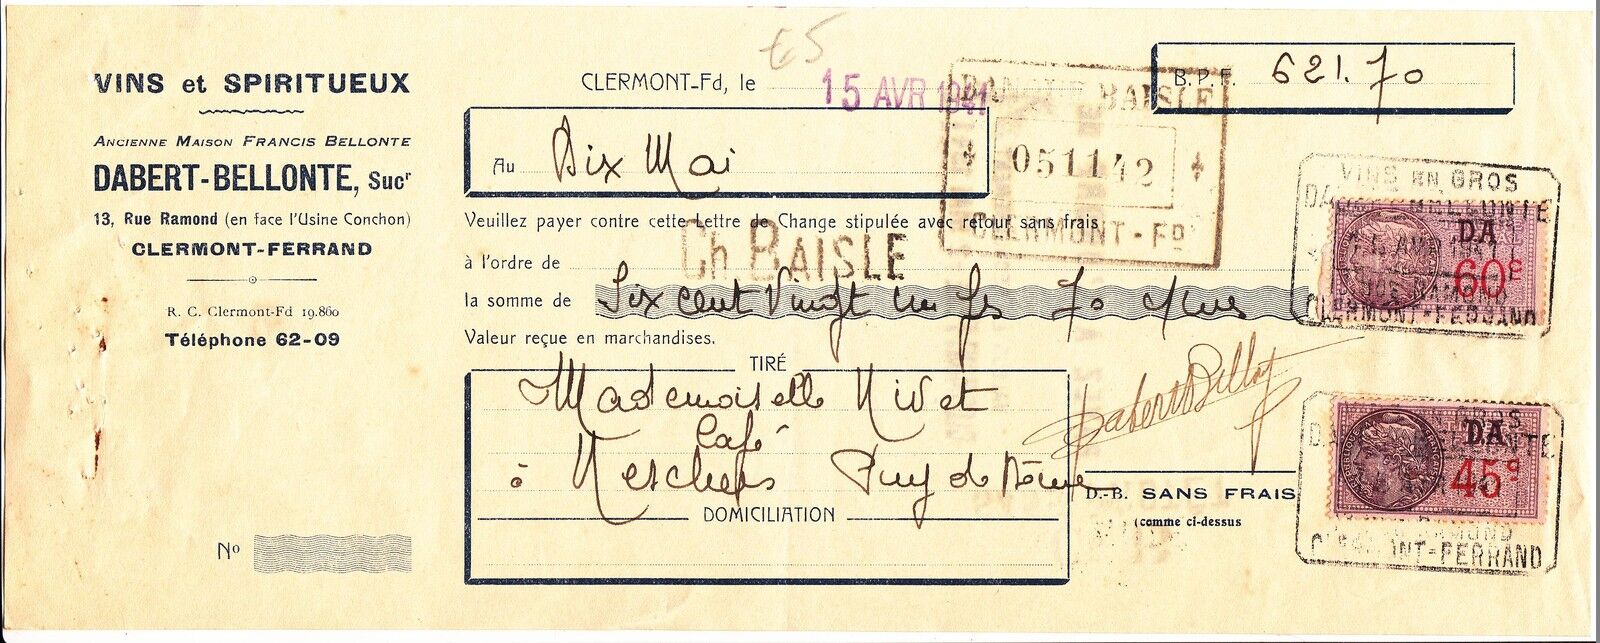 VINS et SPIRITUEUX
ANCIENNE MAISON FRANCIS BELLONTE
DABERT-BELLONTE, Sucr
13, Rue Ramond (en face l'Usine Conchon)
CLERMONT-FERRAND
R. C. Clermont-Fd 19.860
Téléphone 62-09
No
€5
CLERMONT-Fd, le 15 AVR 1941
B.P.F. 621.70
Au Dix Mai
BANQUE BAISLE
051142
CLERMONT-FD
Veuillez payer contre cette Lettre de Change stipulée avec retour sans frais
à l'ordre de Ch BAISLE
la somme de Six cent Vingt un fs 70
Valeur reçue en marchandises.
TIRÉ
Mademoiselle Nivet
Café
à Neschers Puy de Dôme
DOMICILIATION
Dabert Bellonte
D.-B. SANS FRAIS
(comme ci-dessus
VINS EN GROS
DA
60c
RUE RAMOND
CLERMONT-FERRAND
GROS
DA
45c
CLERMONT-FERRAND